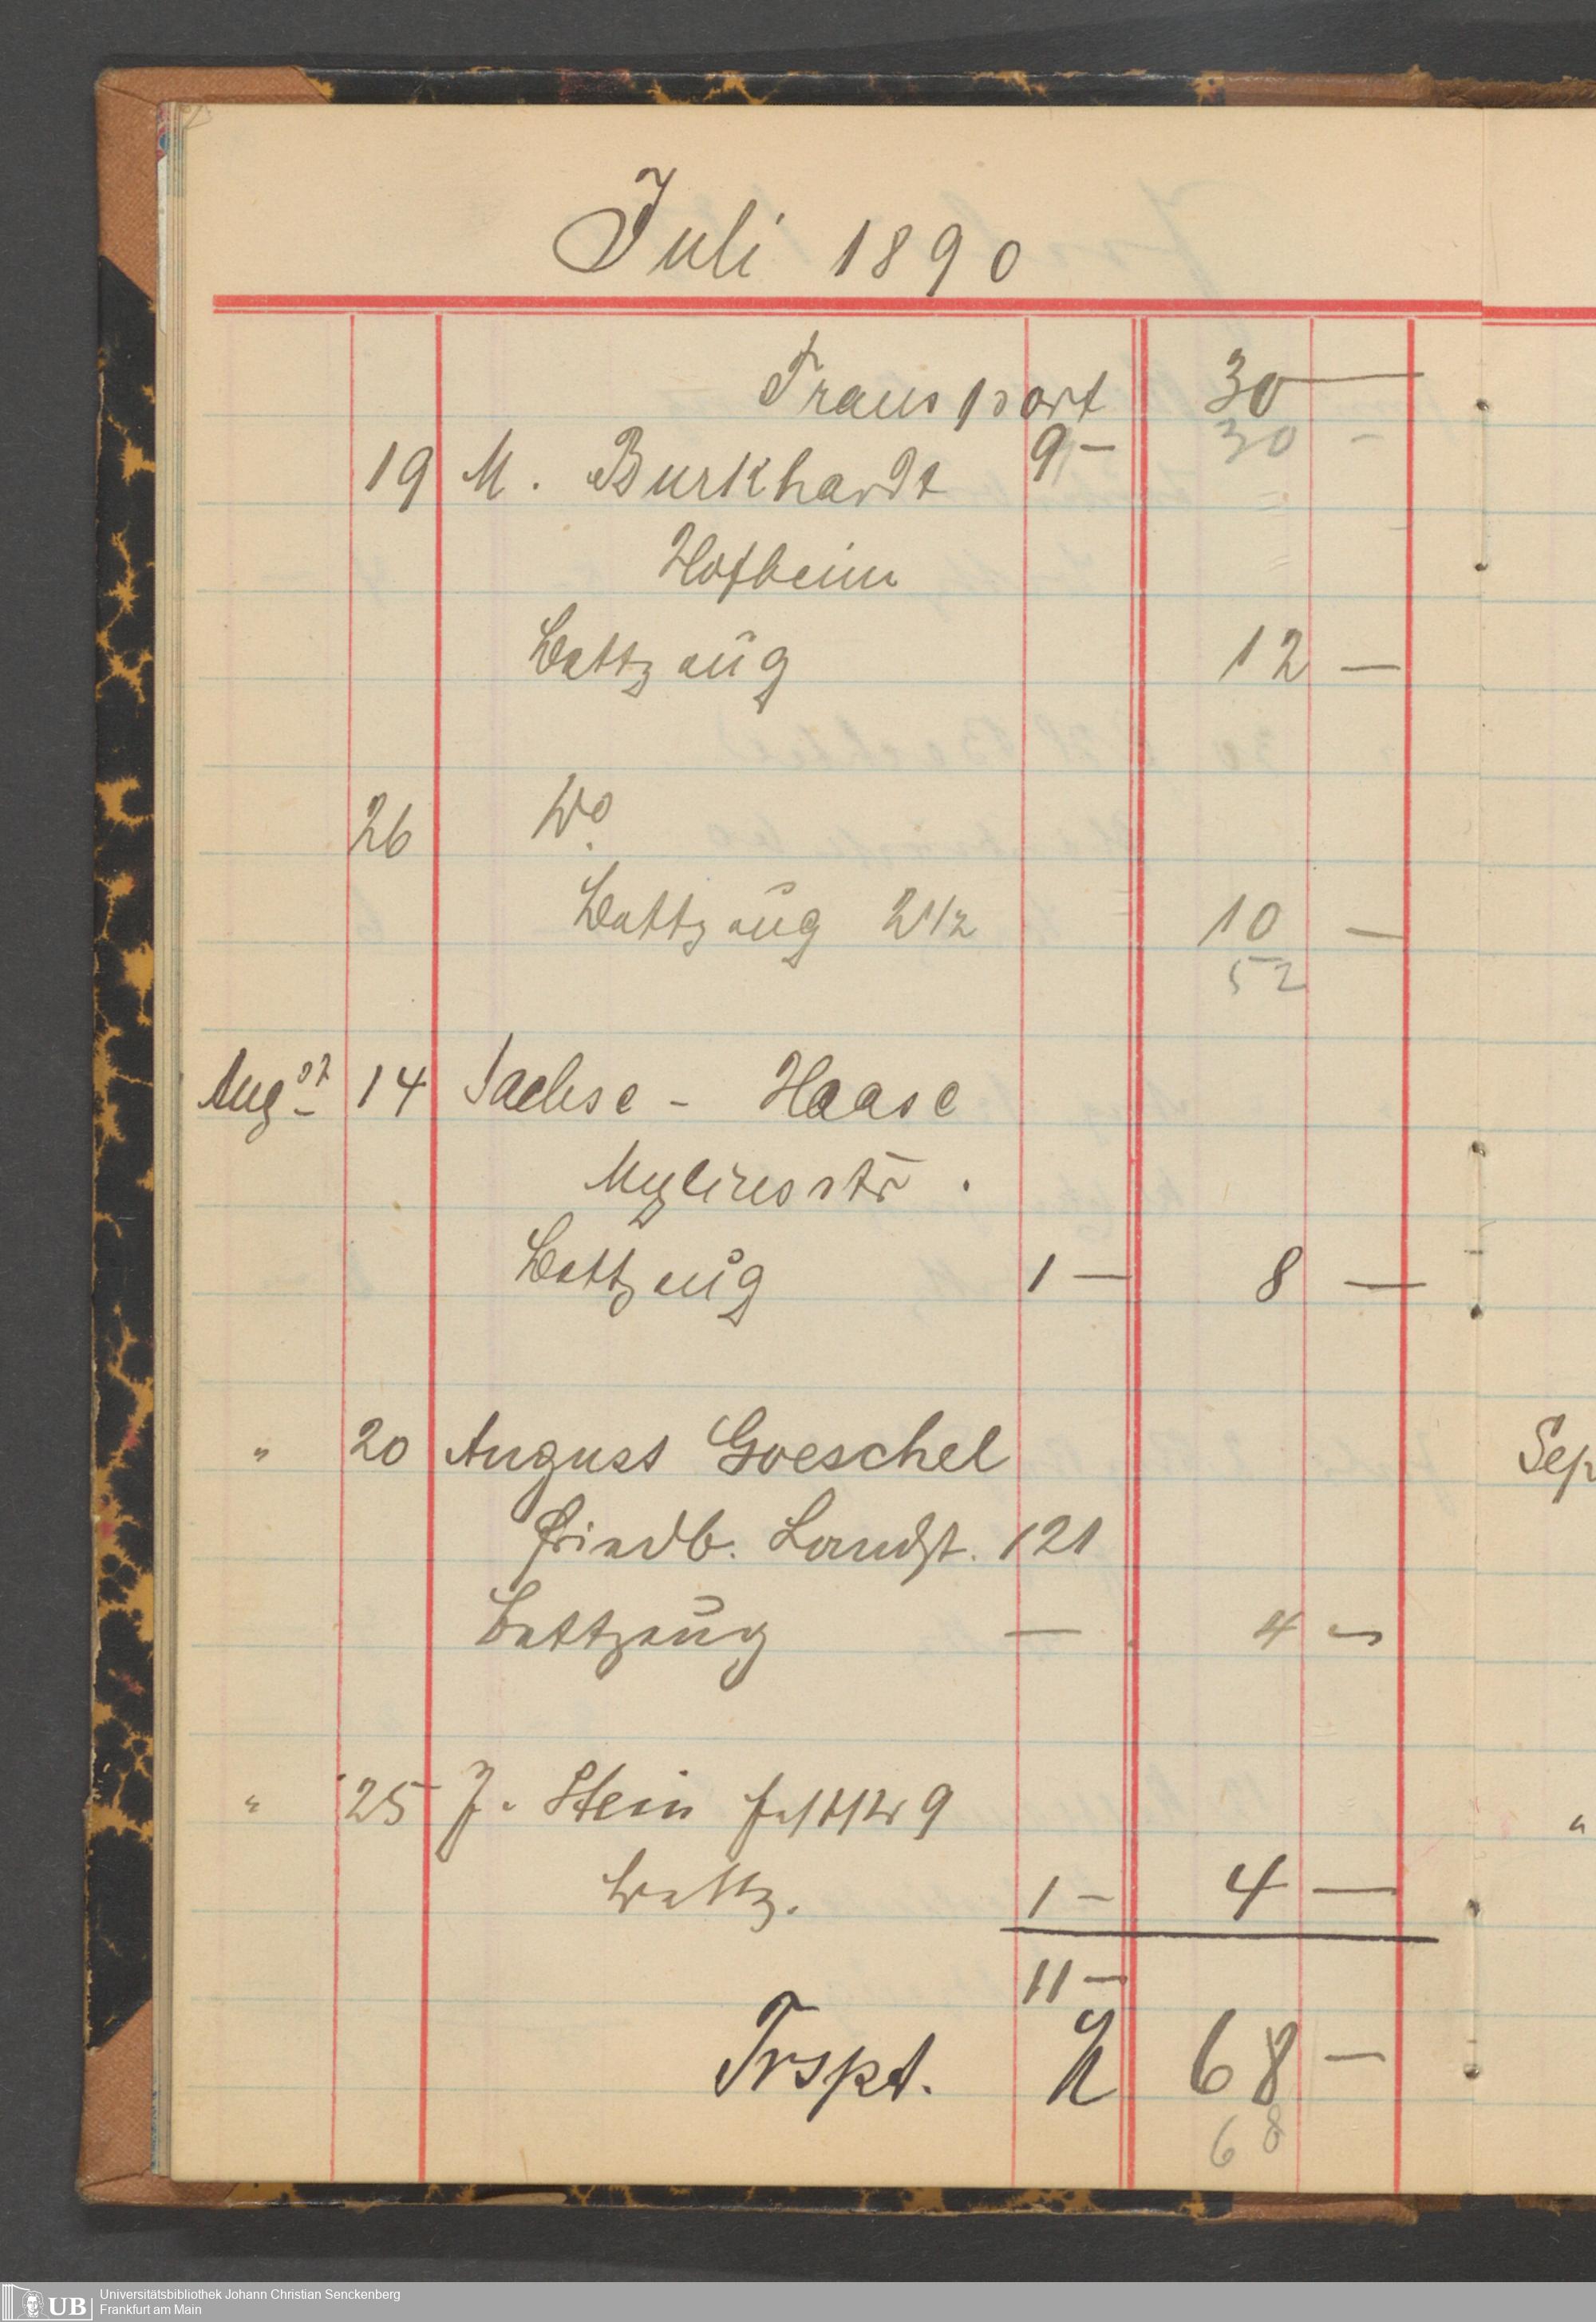 Juli 1890
Transport 30 —
30 -
19 M. Burkhardt 9 -
Hofheim
Bettzeug 12 —
26 Do.
Bettzeug 2 1/2 10 —
52
Augst 14 Sachse - Haase
Myliusstr.
Bettzeug 1 — 8 —
" 20 August Goeschel
Friedb. Landst. 121
Bettzeug — 4 -
" 25 J. Stein 9
Bettz. 1 - 4 —
11 -
Trspt. 68 -
68
Sep
"
Universitätsbibliothek Johann Christian Senckenberg
UB Frankfurt am Main